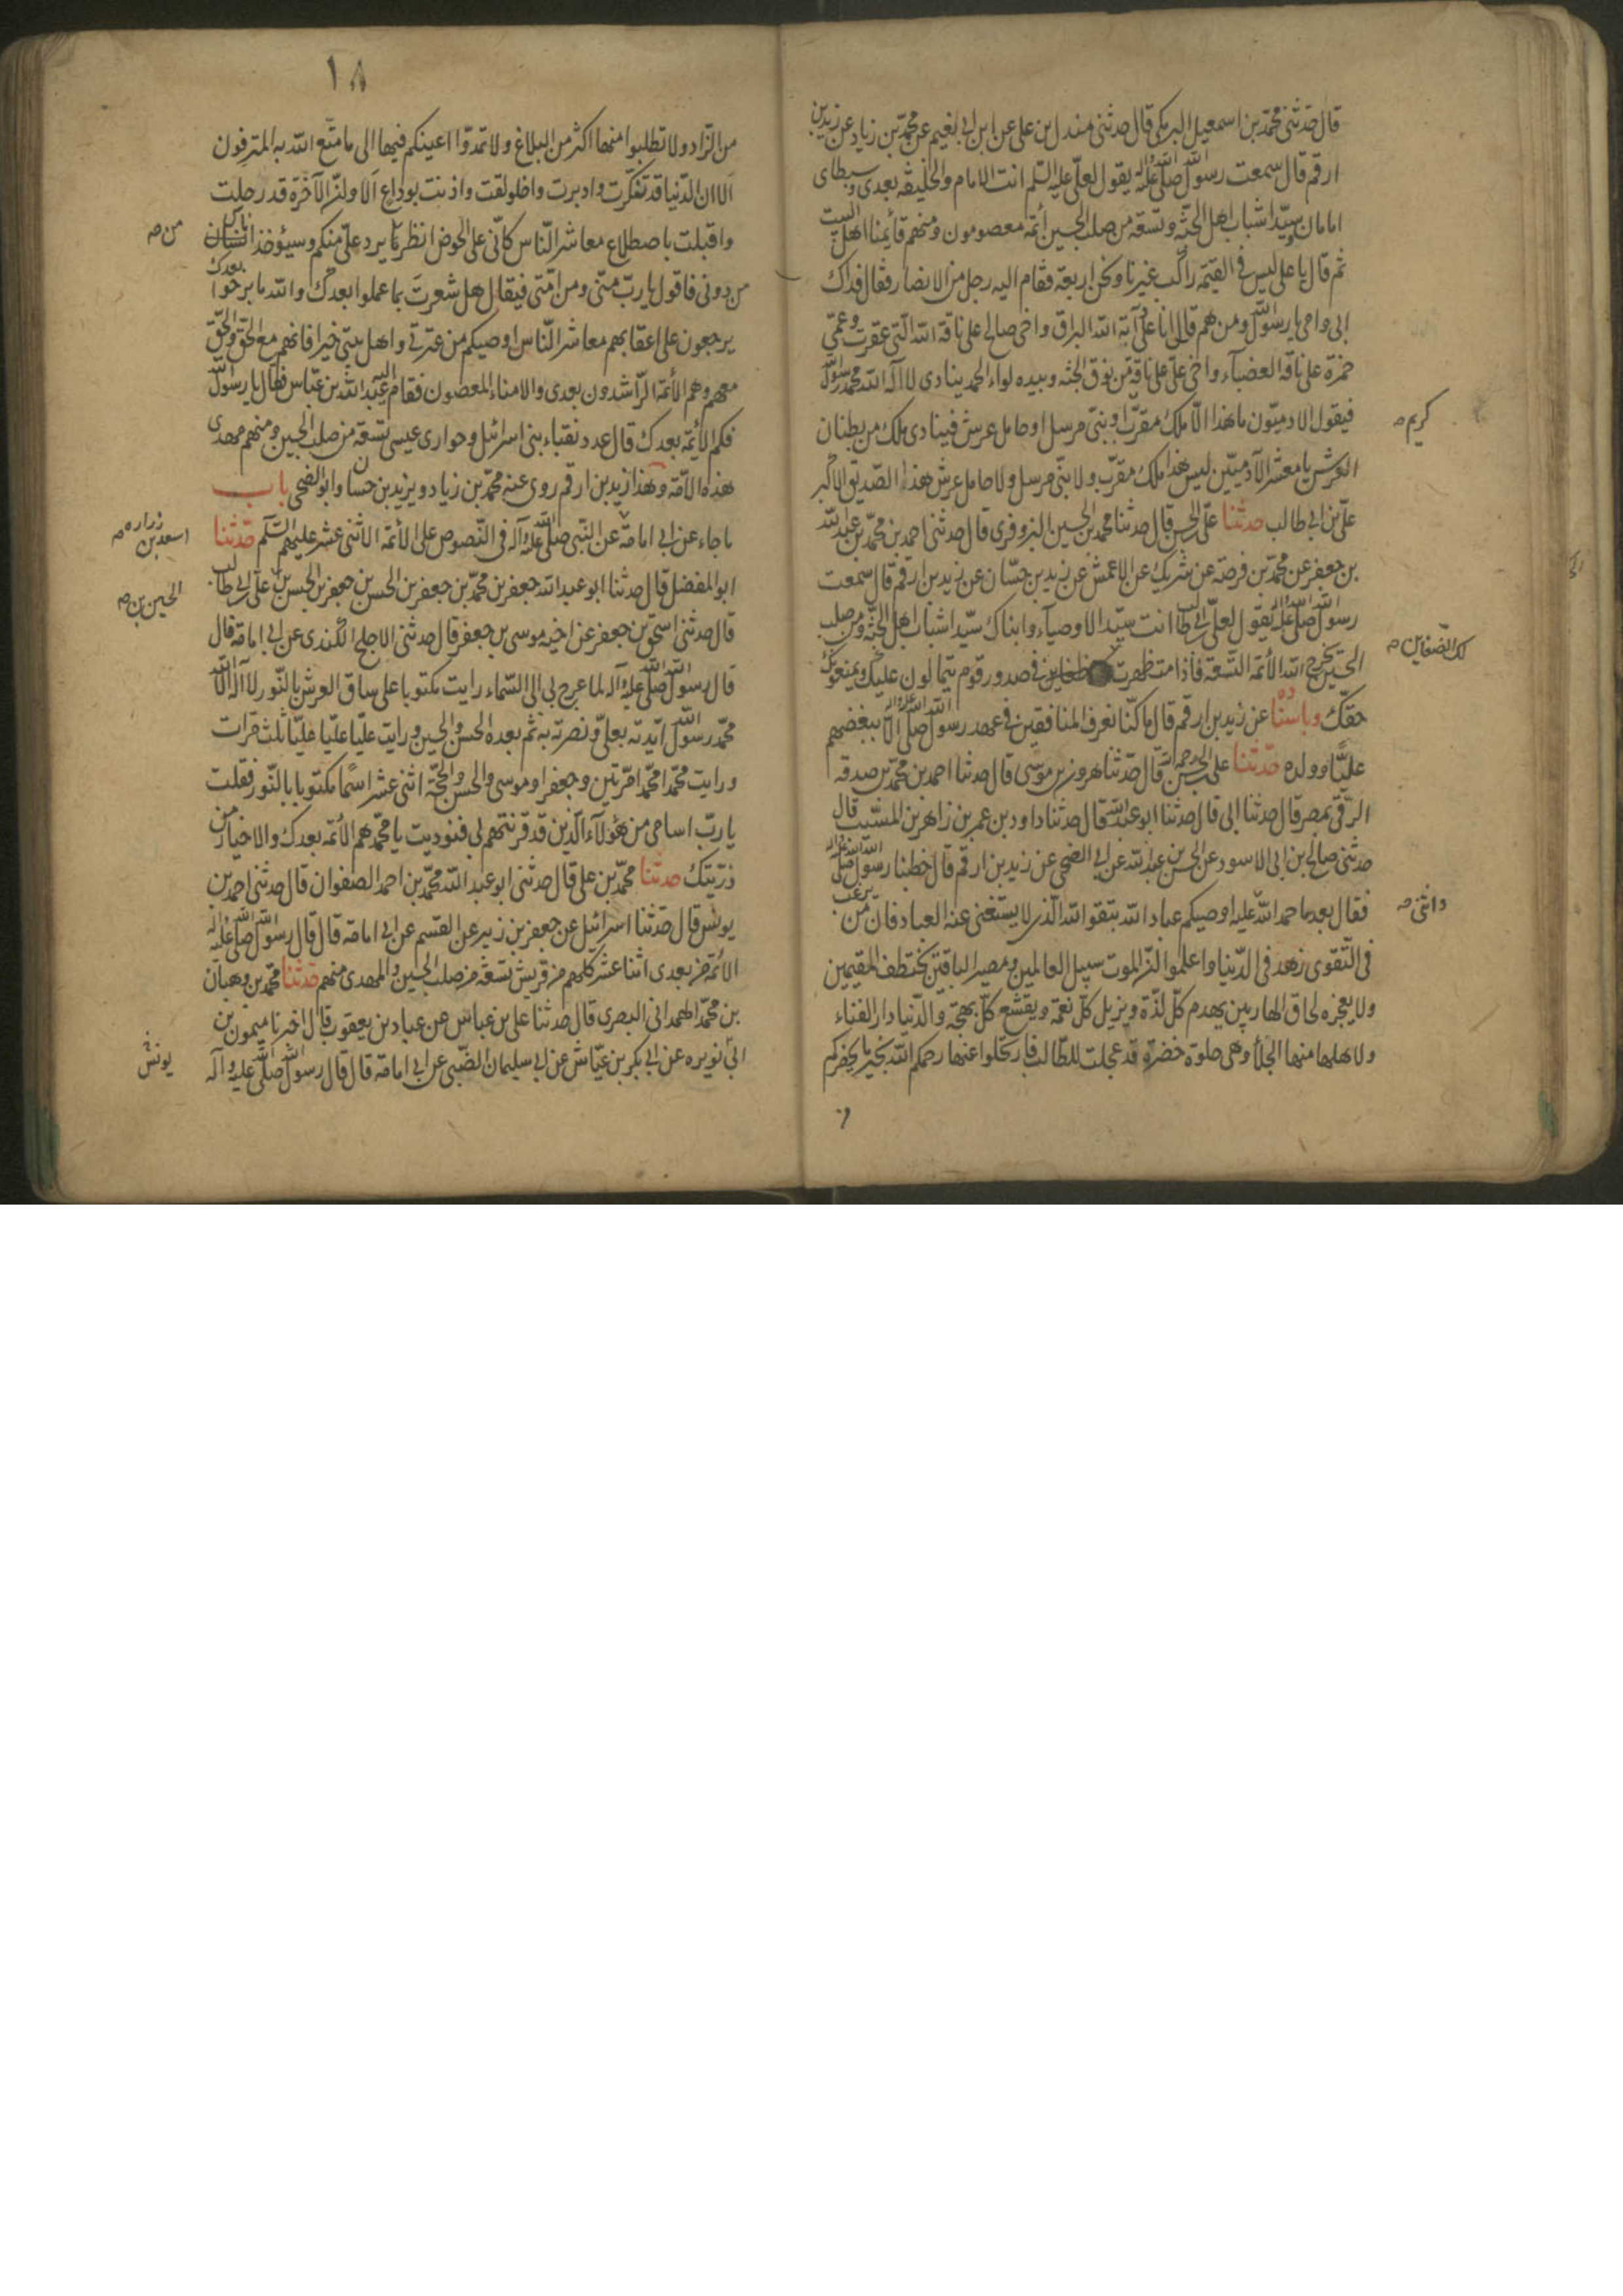 قال حدثنى محمّد بن اسمعيل البرمكى قال حدثنى مندل بن على عن ابن ابى نعيم عن محمّد بن زياد عن زيد بن
ارقم قال سمعت رسول الله صلى الله عليه وآله يقول لعلّى عليه السّلم انت الامام والخليفة بعدى وسبطاى
امامان وسيّدا شباب اهل الجنّة وتسعة من صلب الحسين أئمّة معصومون ومنهم قائمنا اهل البيت
ثم قال يا على ليس فى القيمة راكب غيرنا ونحن اربعة فقام اليه رجل من الانصار فقال فداك
ابى وامى يا رسول الله ومن هم قال انا على دابّة الله البراق واخى صالح على ناقة الله الّتى عقرت وعمّى
حمزة على ناقة العضباء واخى علىّ على ناقة من نوق الجنّة وبيده لواء الحمد ينادى لا اله الا الله محمد رسول الله
فيقول الادميّون ما هذا الّا ملك مقرّب او نبىّ مرسل او حامل عرش فينادى ملك من بطنان
كريم صح
العرش يا معشر الآدميّين ليس هذا ملك مقرّب ولا نبىّ مرسل ولا حامل عرش هذا الصّديق الاكبر
علىّ بن ابى طالب حدثنا علىّ بن الحسن قال حدثنا محمد بن الحسين البزوفرى قال حدثنى احمد بن محمّد بن عبد الله
بن جعفر عن محمّد بن فرضة عن شريك عن الاعمش عن زيد بن حسّان عن زيد بن ارقم قال سمعت
رسول الله صلى الله عليه وآله يقول لعلّى بن ابى طالب انت سيّد الاوصياء وابناك سيّدا شباب اهل الجنّة ومن صلب
الحسين يخرج الله الأئمّة التّسعة فاذا مت ظهرت ضغاين فى صدور قوم يتمالون عليك ويمنعونك
لك الضّغاين صح
حقّك وباسناده عن زيد بن ارقم قال ما كنّا نعرف المنافقين فى عهد رسول الله صلى الله عليه وآله الّا ببغضهم
عليّا وولده حدّثنا على بن الحسن رحمه الله قال حدّثنا هرون بن موسى قال حدثنا احمد بن محمّد بن صدقه
الرّقى بمصر قال حدثنا ابى قال حدثنا ابو عبد الله قال حدثنا داود بن عمر بن زاهر بن المسيّب قال
حدثنى صالح بن ابى الاسود عن الحسن بن عبد الله عن ابى الضحى عن زيد بن ارقم قال خطبنا رسول الله صلى الله عليه وآله
فقال بعد ما حمد الله واثنى عليه اوصيكم عباد الله بتقوا الله الّذى لا يستغنى عنه العباد فان من يرغب
واثنى صح
فى التّقوى زهد فى الدّنيا واعلموا انّ الموت سبيل العالمين ومصير الباقين يختطف المقيمين
ولا يعجزه لحاق الهاربين يهدم كلّ لذّة ويزيل كلّ نعمة ويقشع كلّ بهجة والدّنيا دار الفناء
ولاهلها منها الجلأ وهى حلوة خضرة قد عجلت للطّالب فارتحلوا عنها رحمكم الله بخير ما يحضركم
١٨
من الزّاد ولا تطلبوا منها اكثر من البلاغ ولا تمدّوا اعينكم فيها الى ما متّع الله به المترفون
ألا ان الدّنيا قد تنكّرت وادبرت واخلولقت واذنت بوداع ألا وانّ الآخرة قد رحلت
واقبلت باصطلاع معاشر النّاس كانّى على الحوض انظر ما يرد علىّ منكم وسيؤخذ اناس
من صح
من دونى فاقول يا ربّ منّى ومن امّتى فيقال هل شعرت بما عملوا بعدك والله ما برحوا بعدك
يرجعون على اعقابهم معاشر النّاس اوصيكم من عترتى واهل بيتى خيرا فانهم مع الحق والحقّ
معهم وهم الأئمّة الرّاشدون بعدى والامناء المعصون فقام اليه عبد الله بن عبّاس فقال يا رسول الله
فكم الأئمّة بعدك قال عدد نقباء بنى اسرائيل وحوارى عيسى تسعة من صلب الحسين ومنهم مهدى
هذه الامّة وهذا زيد بن ارقم روى عنه محمّد بن زياد ويزيد بن حسان وابو الضحى باب
ما جاء عن ابى امامة عن النّبى صلى الله عليه وآله فى النّصوص على الأئمّة الاثنى عشر عليهم السّلم حدّثنا
اسعد بن زراره صح
ابو المفضل قال حدثنا ابو عبد الله جعفر بن محمّد بن جعفر بن الحسن بن جعفر بن الحسن بن على بن ابى طالب
الحسين بن صح
قال حدثنى اسحق بن جعفر عن اخيه موسى بن جعفر قال حدثنى الاجلح الكندى عن ابى امامة قال
قال رسول الله صلى الله عليه وآله لما عرج بى الى السّماء رايت مكتوبا على ساق العرش بالنّور لا اله الا الله
محمّد رسول الله ايّدته بعلىّ ونصرته به ثم بعده الحسن والحسين ورايت عليّا عليّا عليّا ثلث مرات
ورايت محمّدا محمّدا مرّتين وجعفرا وموسى والحسن والحجّة اثنى عشر اسمًا مكتوبا بالنّور فقلت
يا ربّ اسامى من هؤلآء الّذين قد قرنتهم بى فنوديت يا محمّد هم الأئمّة بعدك والاخيار من
ذرّيّتك حدثنا محمّد بن على قال حدثنى ابو عبد الله محمّد بن احمد الصفوان قال حدثنى احمد بن
يونس قال حدّثنا اسرائيل عن جعفر بن زبير عن القسم عن ابى امامة قال قال رسول الله صلى الله عليه وآله
الأئمّة من بعدى اثنا عشر كلهم من قريش تسعة من صلب الحسين والمهدى منهم حدّثنا محمّد بن وهبان
بن محمّد الهمدانى البصرى قال حدثنا على بن عباس عن عباد بن يعقوب قال اخبرنا ميمون بن
ابى نويره عن ابى بكر بن عيّاش عن ابى سليمان الضّبى عن ابى امامة قال قال رسول الله صلى الله عليه وآله
يونس